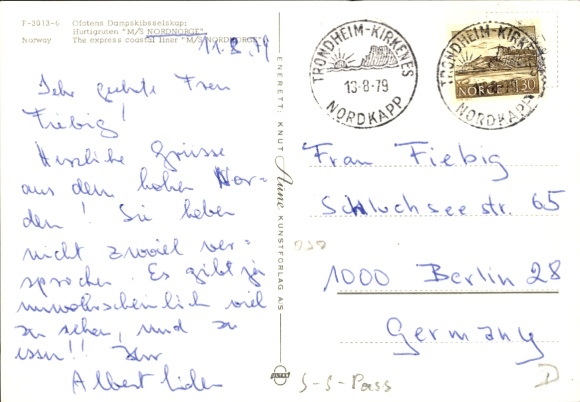 F-3013-6 Ofotens Dampskibsselskap:
Hurtigruten "M/S NORDNORGE"
Norway The express coastal liner "M/S NORDNORGE"
11.8.79
Sehr geehrte Frau
Fiebig!
Herzliche Grüsse
aus dem hohen Nor-
den! Sie haben
nicht zuviel ver-
sprochen. Es gibt ja
unwahrscheinlich viel
zu sehen, und zu
essen!! Ihr
Albert
ENERETT: KNUT Aune KUNSTFORLAG A/S
TRONDHEIM-KIRKENES
13-8-79
NORDKAPP
TRONDHEIM-KIRKENES
NORGE 130
NORDKAPP
Frau Fiebig
Schluchseestr. 65
1000 Berlin 28
Germany
S-S-Pass
D